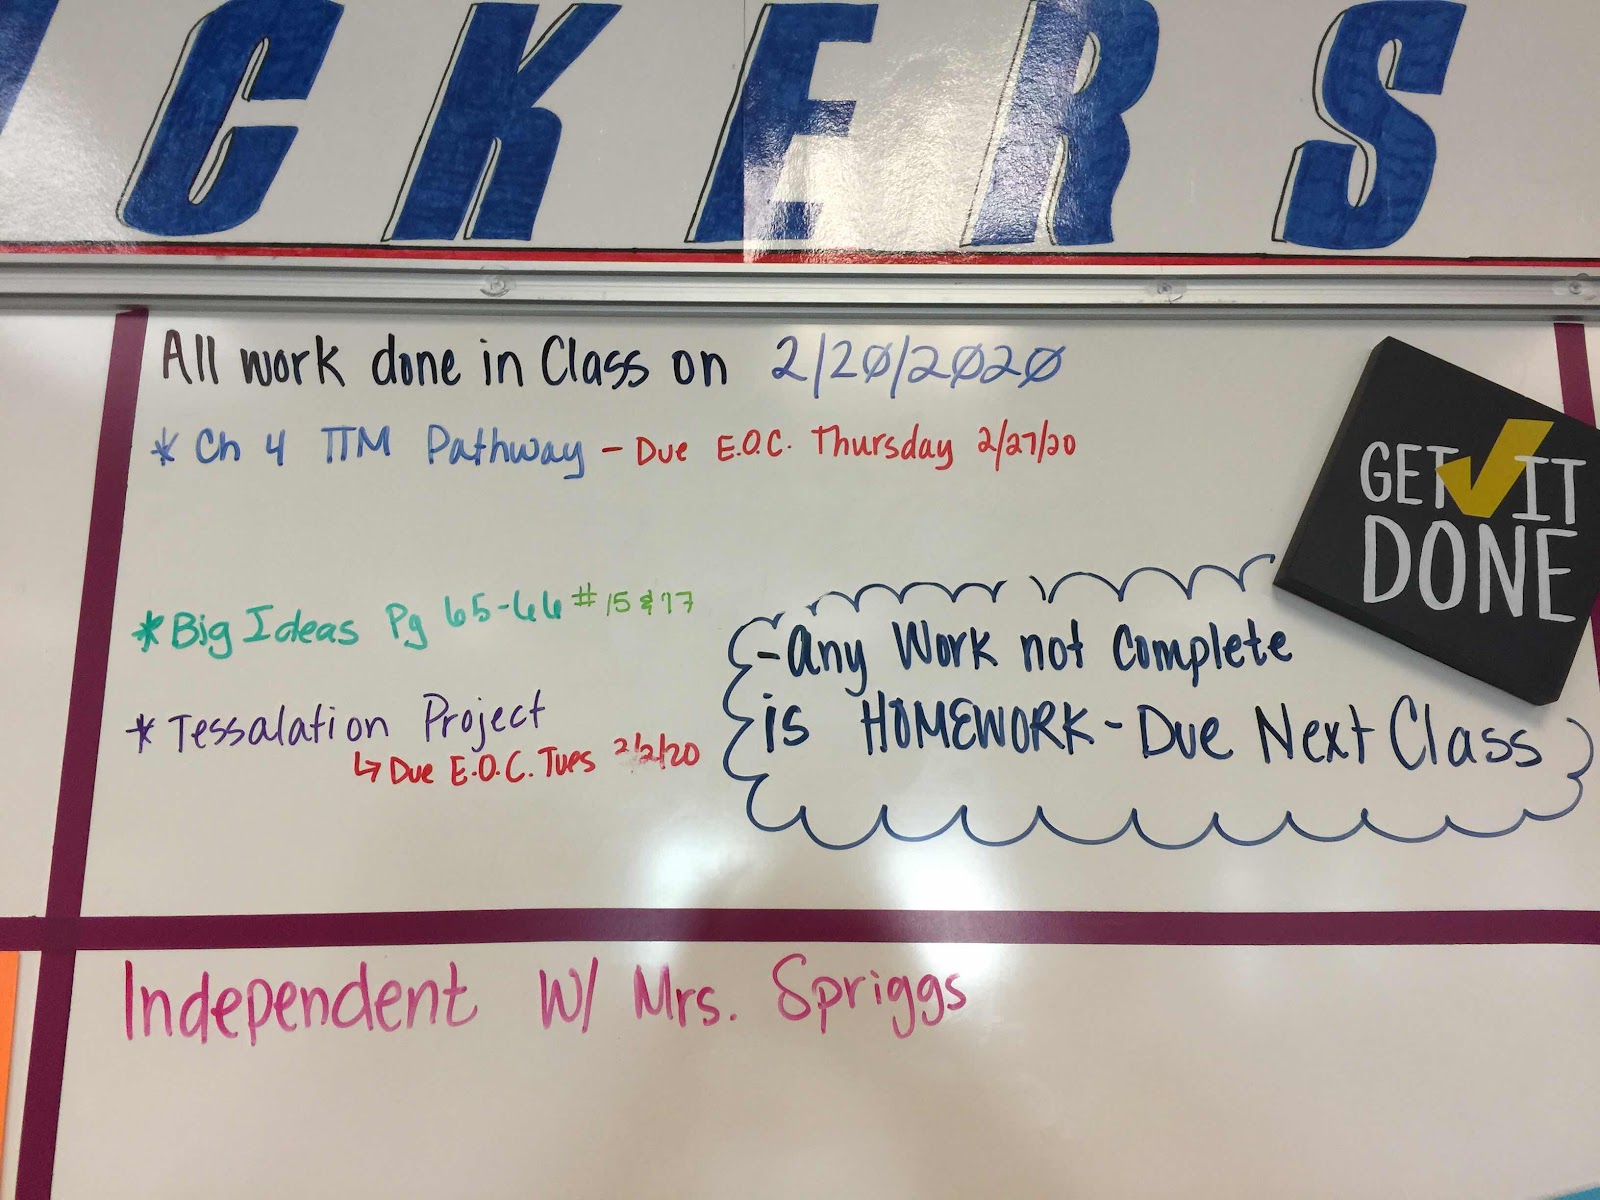 CKERS
All work done in Class on 2/20/2020
* Ch 4 TTM Pathway - Due E.O.C. Thursday 2/27/20
GET IT
DONE
* Big Ideas Pg 65-66 # 15 & 17
- Any Work not Complete
is HOMEWORK - Due Next Class
* Tessalation Project
↳ Due E.O.C. Tues 2/2/20
Independent W/ Mrs. Spriggs